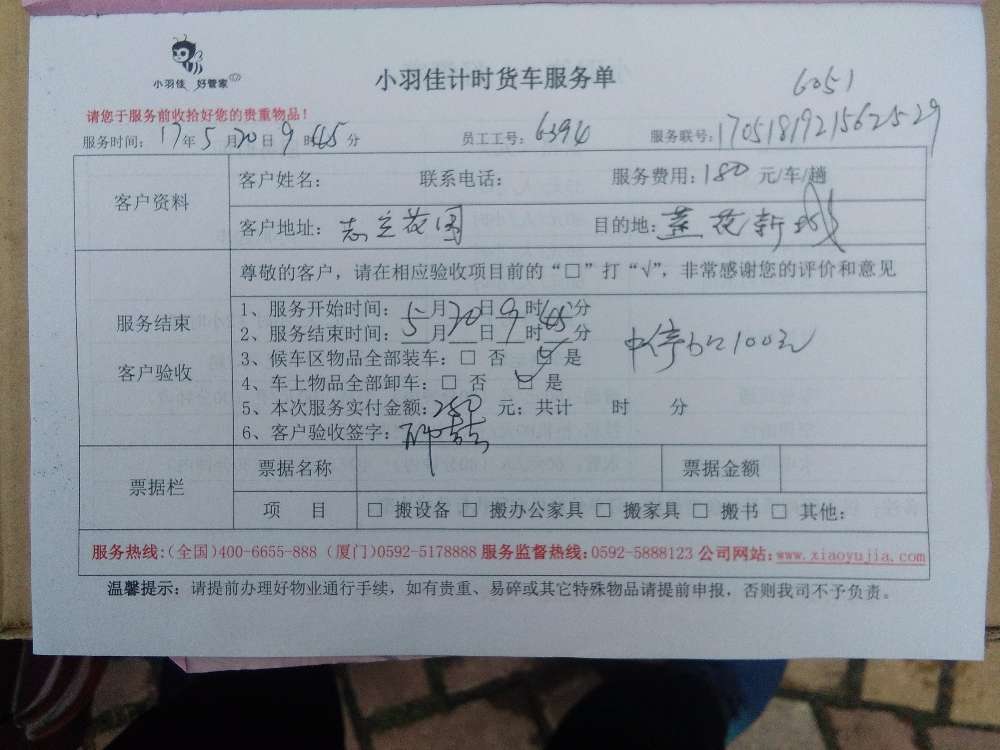 小羽佳 好管家
小羽佳计时货车服务单
6051
请您于服务前收拾好您的贵重物品！
服务时间： 17 年 5 月 20 日 9 时 45 分 员工工号： 6394 服务联号： 1705181921562529
客户资料
客户姓名： 联系电话： 服务费用：180 元/车/趟
客户地址： 志立花园 目的地： 莲花新城
服务结束
客户验收
尊敬的客户，请在相应验收项目前的“□”打“√”，非常感谢您的评价和意见
1、服务开始时间： 5 月 20 日 9 时 45 分
2、服务结束时间： 5 月 20 日 9 时 45 分
中停加100元
3、候车区物品全部装车：□ 否 ☑ 是
4、车上物品全部卸车：□ 否 ☑ 是
5、本次服务实付金额：280 元；共计 时 分
6、客户验收签字：
票据栏
票据名称 票据金额
项 目 □ 搬设备 □ 搬办公家具 □ 搬家具 □ 搬书 □ 其他：
服务热线:(全国)400-6655-888 (厦门)0592-5178888 服务监督热线:0592-5888123 公司网站:www.xiaoyujia.com
温馨提示：请提前办理好物业通行手续，如有贵重、易碎或其它特殊物品请提前申报，否则我司不予负责。